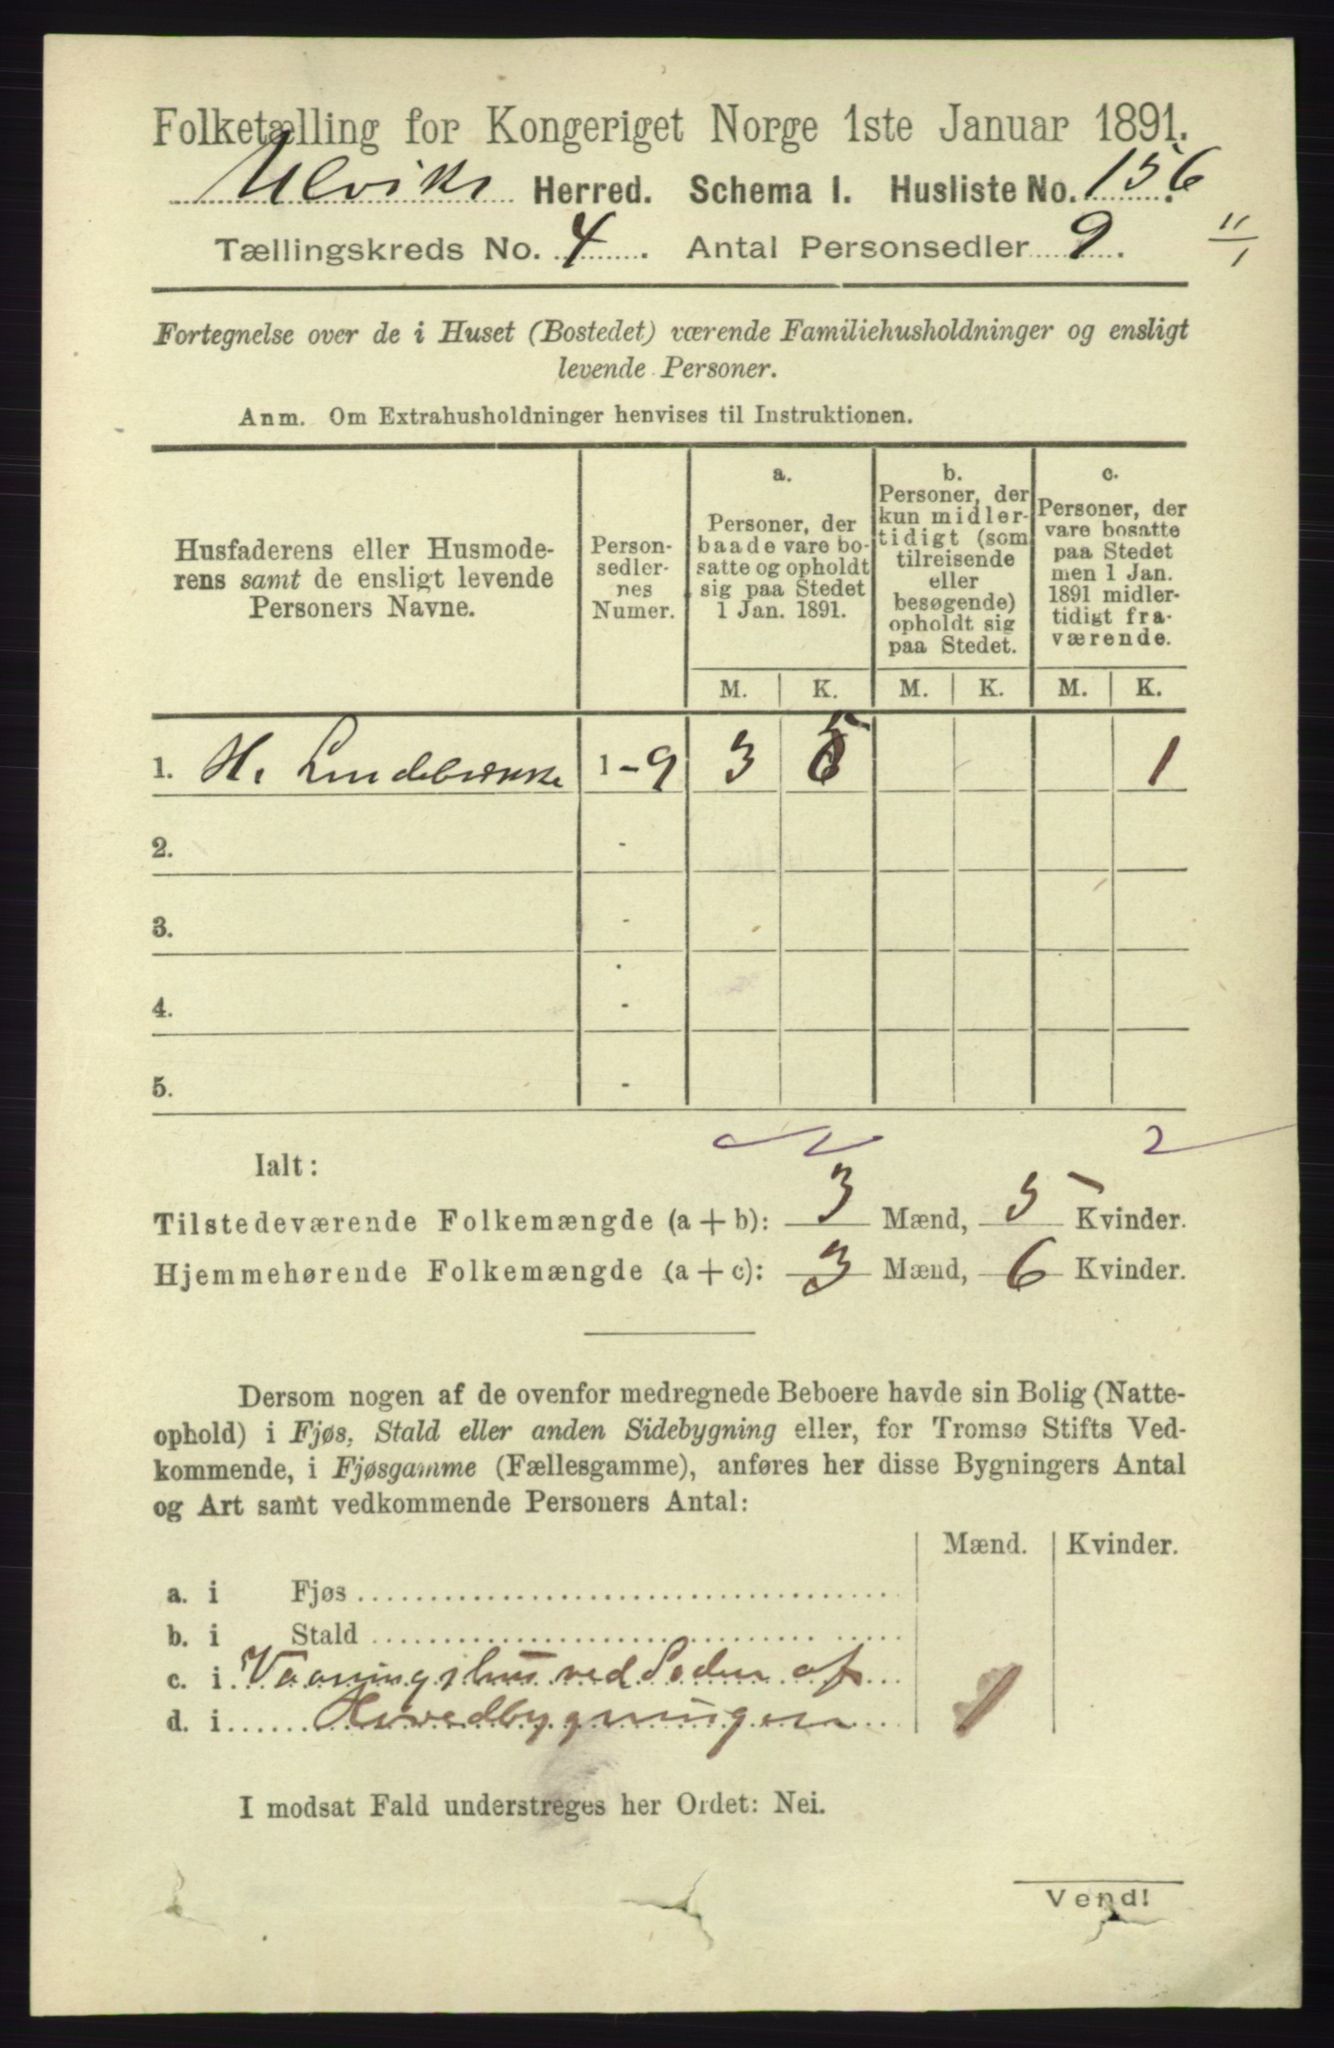 Folketælling for Kongeriget Norge 1ste Januar 1891.
Ulviks Herred. Schema I. Husliste No. 156
Tællingskreds No. 4. Antal Personsedler 9. 11/1
Fortegnelse over de i Huset (Bostedet) værende Familiehusholdninger og ensligt
levende Personer.
Anm. Om Extrahusholdninger henvises til Instruktionen.
Husfaderens eller Husmode-
rens samt de ensligt levende
Personers Navne.
Person-
sedler-
nes
Numer.
a.
Personer, der
baade vare bo-
satte og opholdt
sig paa Stedet
1 Jan. 1891.
b.
Personer, der
kun midler-
tidigt (som
tilreisende
eller
besøgende)
opholdt sig
paa Stedet.
c.
Personer, der
vare bosatte
paa Stedet
men 1 Jan.
1891 midler-
tidigt fra-
værende.
M. K. M. K. M. K.
1. H. Lindebrække 1 - 9 3 5 1
2. -
3. -
4. -
5. -
2
Ialt:
Tilstedeværende Folkemængde (a + b): 3 Mænd, 5 Kvinder.
Hjemmehørende Folkemængde (a + c): 3 Mænd, 6 Kvinder.
Dersom nogen af de ovenfor medregnede Beboere havde sin Bolig (Natte-
ophold) i Fjøs, Stald eller anden Sidebygning eller, for Tromsø Stifts Ved-
kommende, i Fjøsgamme (Fællesgamme), anføres her disse Bygningers Antal
og Art samt vedkommende Personers Antal:
Mænd. Kvinder.
a. i Fjøs
b. i Stald
c. i Vaaningshus ved Siden af
d. i Hovedbygningen 1
I modsat Fald understreges her Ordet: Nei.
Vend!